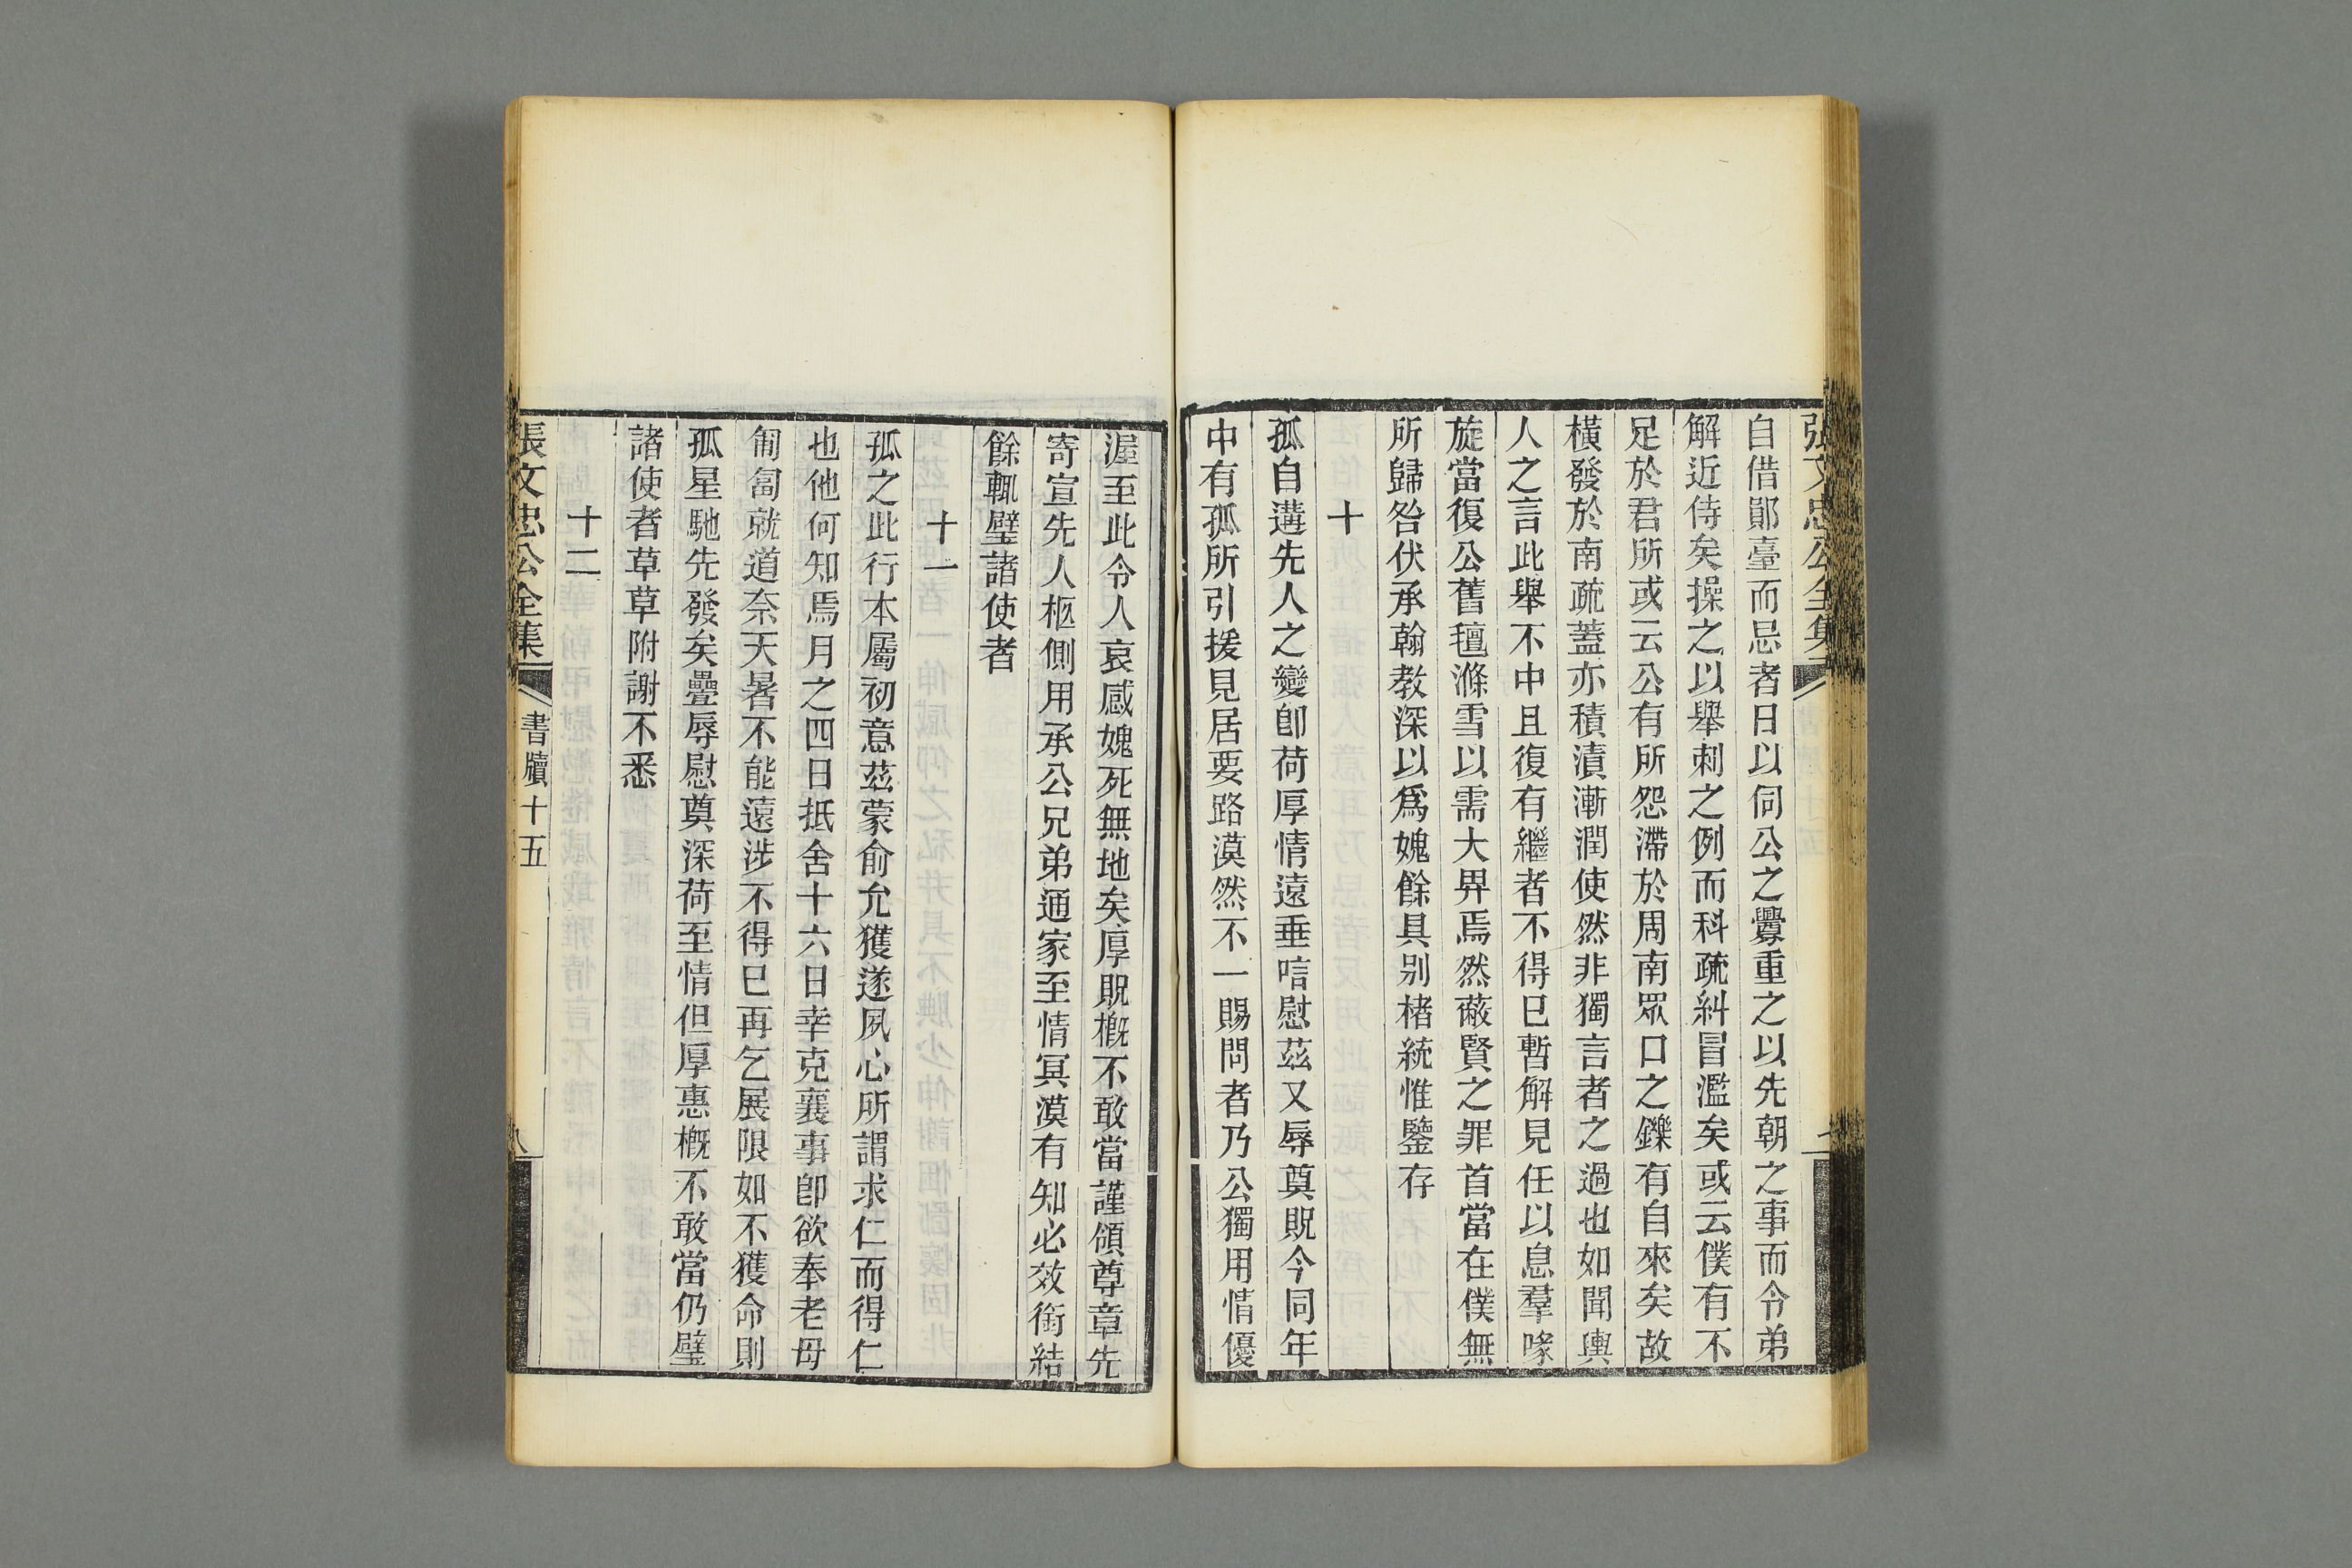 張文忠公全集
自借鄖臺而忌者日以伺公之釁重之以先朝之事而令弟
解近侍矣操之以舉刺之例而科疏糾冒濫矣或云僕有不
足於君所或云公有所怨滯於周南眾口之鑠有自來矣故
橫發於南疏蓋亦積漬漸潤使然非獨言者之過也如聞輿
人之言此舉不中且復有繼者不得已暫解見任以息羣喙
旋當復公舊氊滌雪以需大畀焉然蔽賢之罪首當在僕無
所歸咎伏承翰教深以爲媿餘具别楮統惟鑒存
十
孤自遘先人之變卽荷厚情遠垂唁慰茲又辱奠貺今同年
中有孤所引援見居要路漠然不一賜問者乃公獨用情優
渥至此令人哀感媿死無地矣厚貺概不敢當謹領尊章先
寄宣先人柩側用承公兄弟通家至情冥漠有知必效銜結
餘輒璧諸使者
十一
孤之此行本屬初意茲蒙俞允獲遂夙心所謂求仁而得仁
也他何知焉月之四日抵舍十六日幸克襄事卽欲奉老母
匍匐就道奈天暑不能遠涉不得已再乞展限如不獲命則
孤星馳先發矣疊辱慰奠深荷至情但厚惠概不敢當仍璧
諸使者草草附謝不悉
十二
張文忠公全集
書牘十五
八